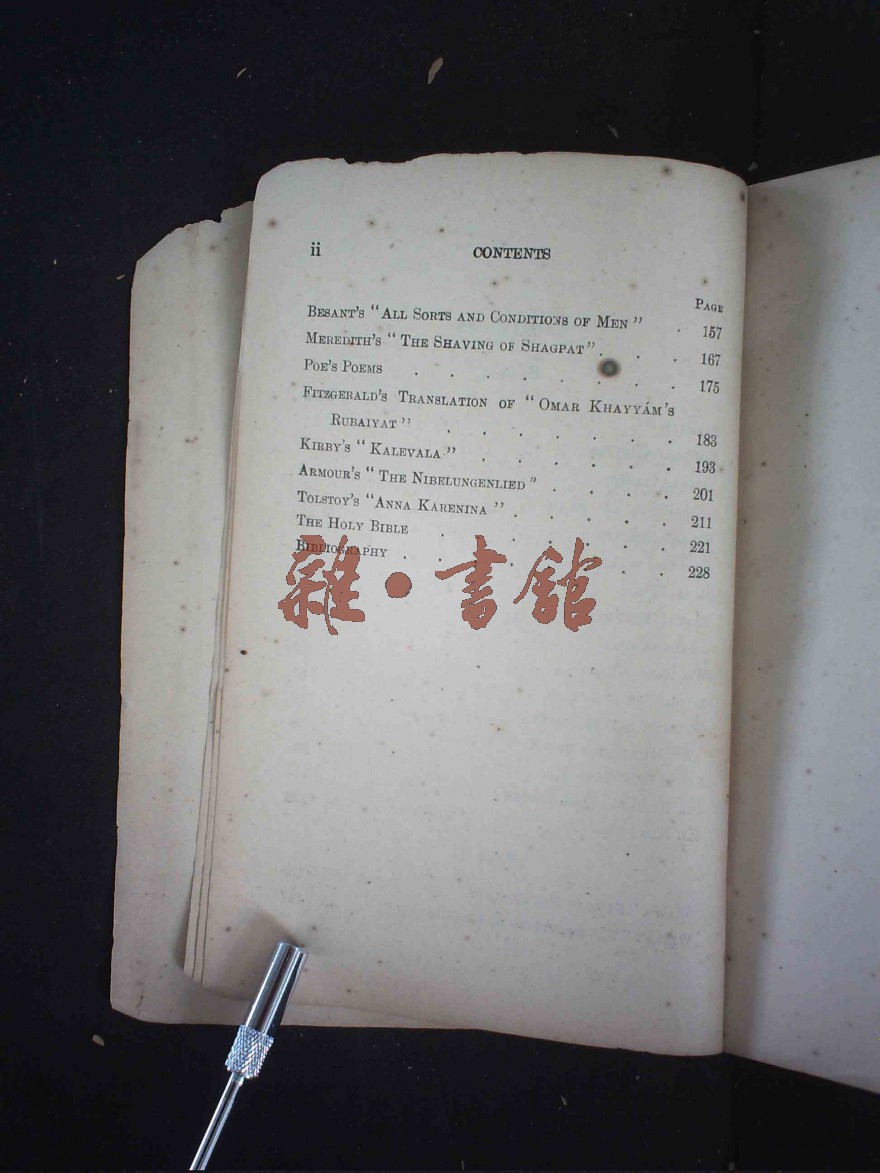 ii CONTENTS
PAGE
BESANT'S "ALL SORTS AND CONDITIONS OF MEN" . 157
MEREDITH'S "THE SHAVING OF SHAGPAT" . . . 167
POE'S POEMS . . . . . . . . 175
FITZGERALD'S TRANSLATION OF "OMAR KHAYYÁM'S
RUBAIYAT" . . . . . . . 183
KIRBY'S "KALEVALA" . . . . . . 193
ARMOUR'S "THE NIBELUNGENLIED" . . . . 201
TOLSTOY'S "ANNA KARENINA" . . . . . 211
THE HOLY BIBLE . . . . . . . 221
BIBLIOGRAPHY . . . . . . . 228
雜·書館